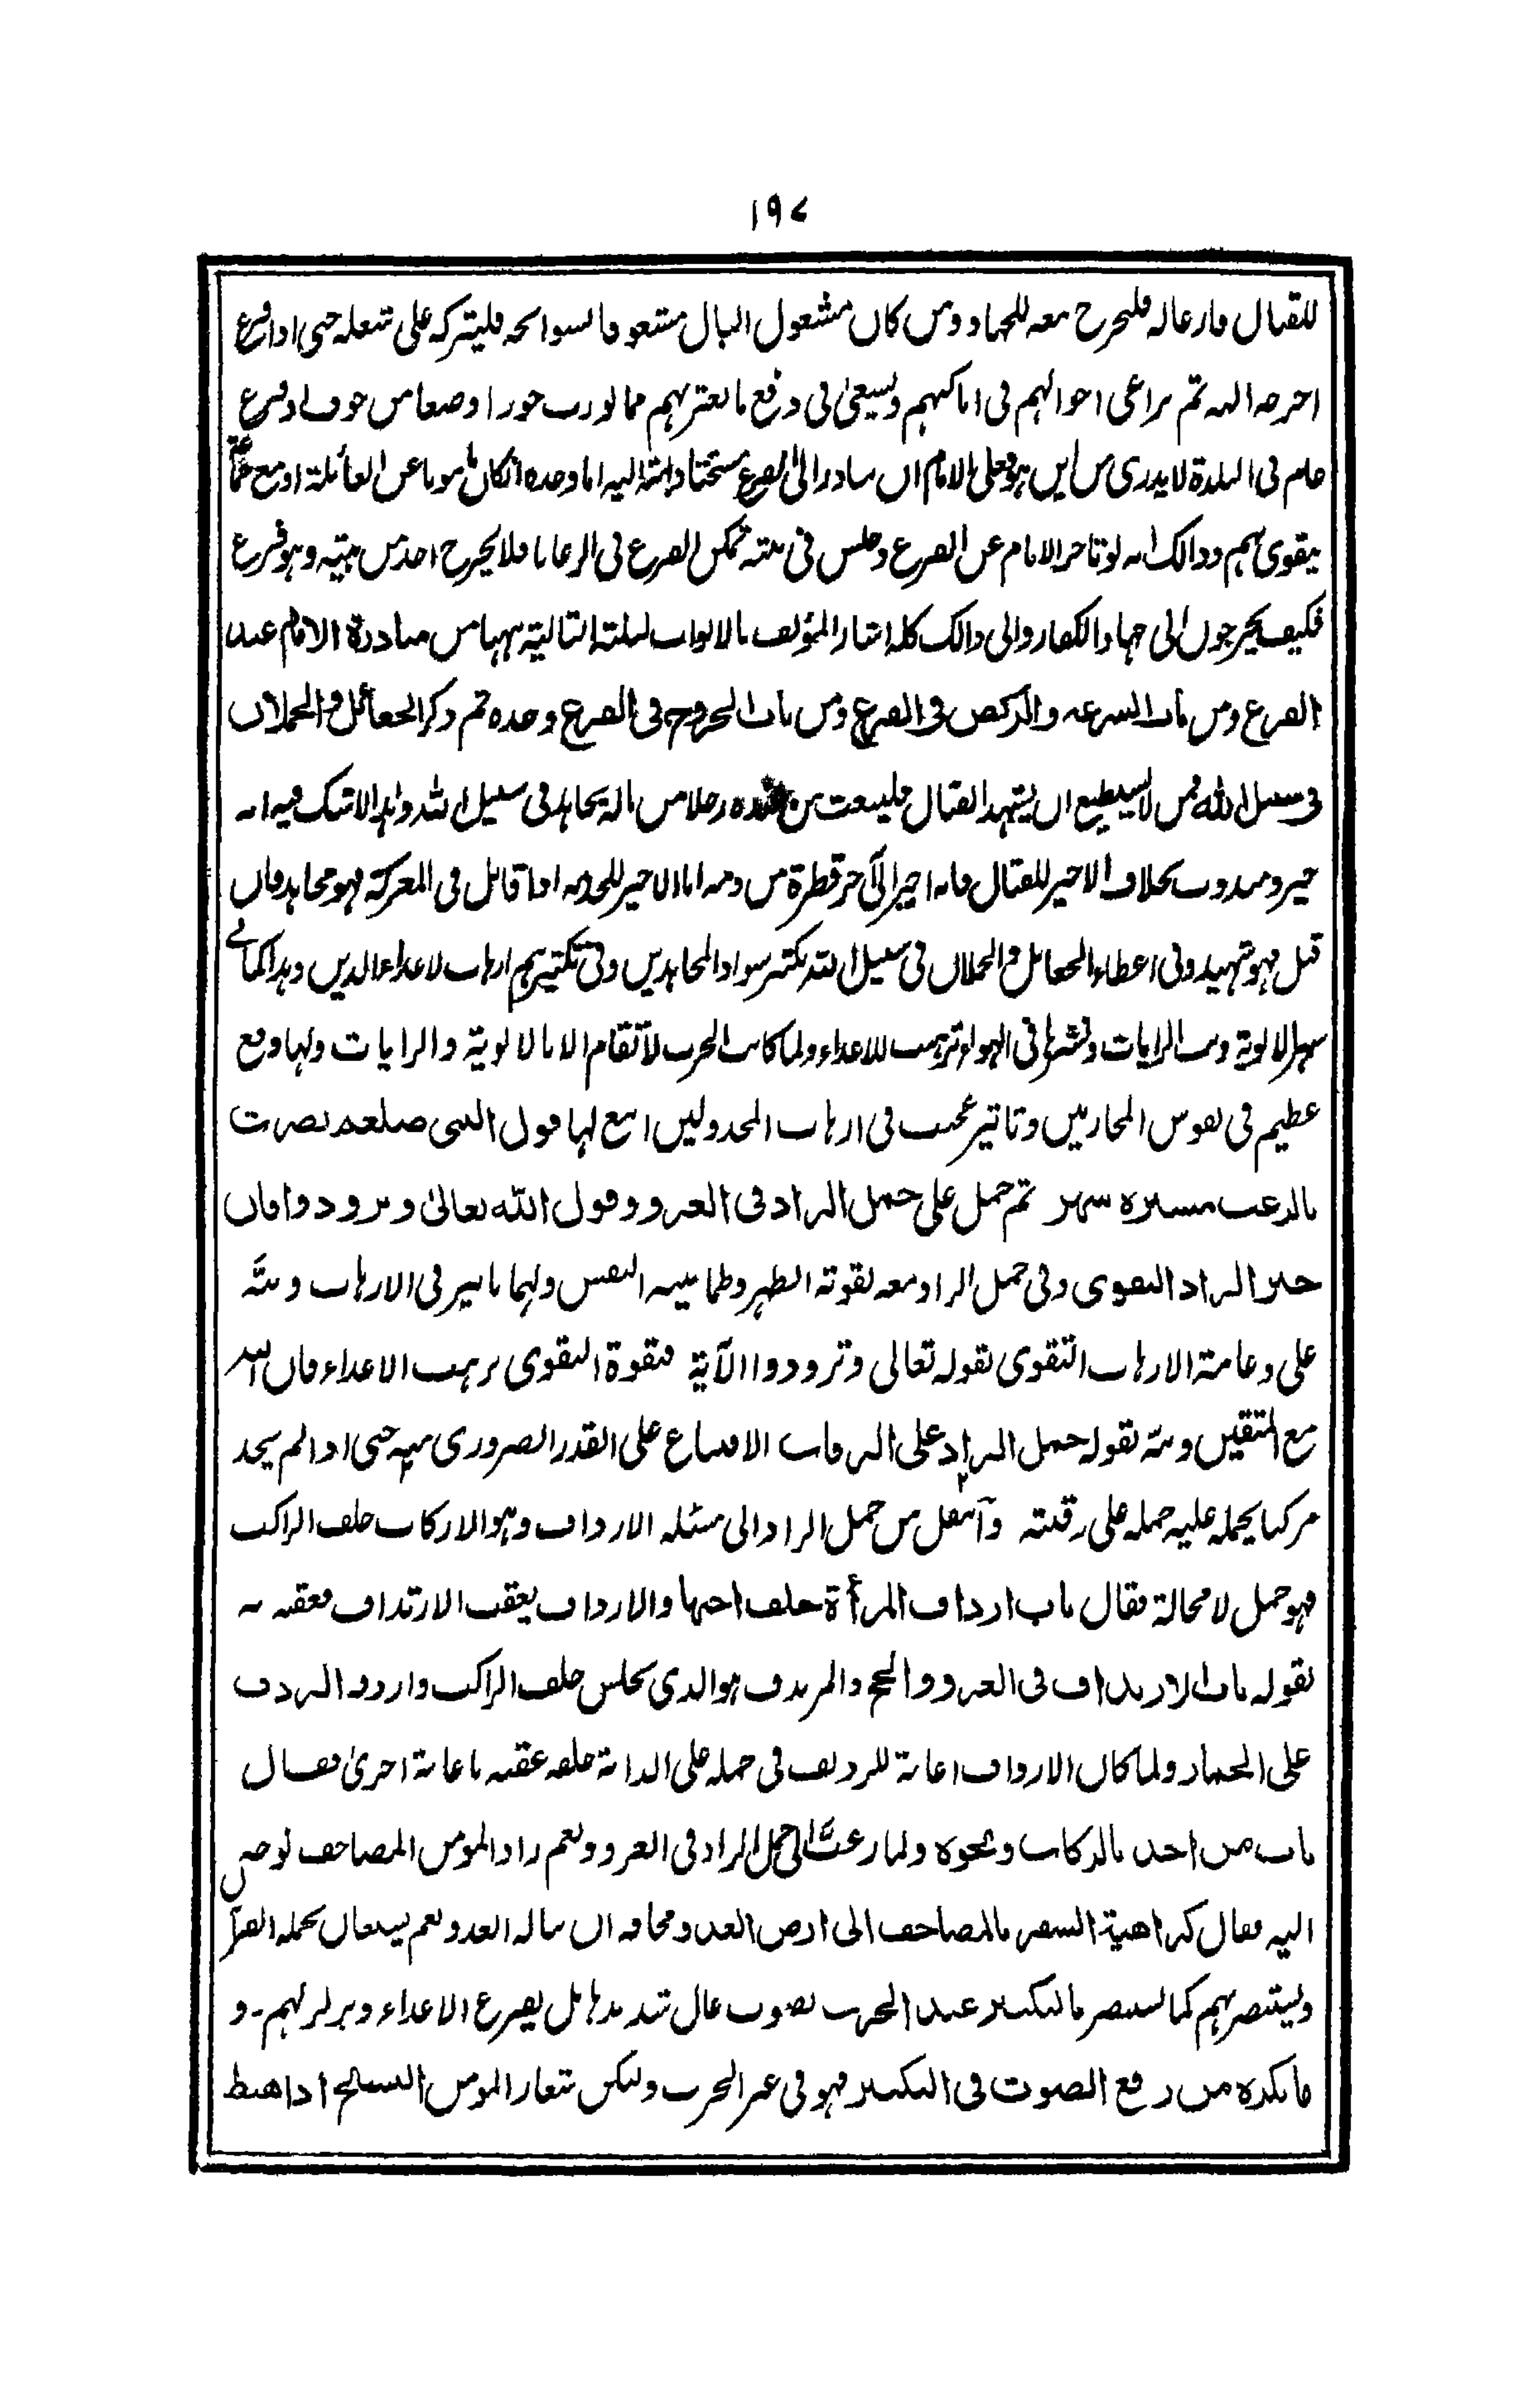 ١٩٧
للقتال فارغاله فليخرج معه للجهاد ومن كان مشغول البال مشغوفا بسوانحه فليتركه على شغله حتى اذا فرغ
اخرجه اليه ثم يراعى احوالهم فى اماكنهم ويسعى فى دفع ما يعتريهم مما يورث خورا وضعفا من خوف او فزع
عام فى البلدة لا يدرى من اين هو فعلى الامام ان يبادر الى الفزع اما وحده ان كان مامونا عن الغائلة او مع جماعة
يقوى بهم وذالك انه لو تاخر الامام عن الفزع وجلس فى بيته تمكن الفزع فى الرعايا فلا يخرج احد من بيته وهو فزع
فكيف يخرجون الى جهاد الكفار والى ذالك كله اشار المؤلف بالابواب الثلثة التالية بهها من مبادرة الامام عند
الفزع ومن باب السرعة والركض فى الفزع ومن باب الخروج فى الفزع وحده ثم ذكر الجعائل والحملان
فى سبيل الله فمن لا يستطيع ان يشهد القتال فليبعث من عنده رجلا من ماله يجاهد فى سبيل الله وهذا لا شك فيه انه
خير ومندوب بخلاف الاجير للقتال فانه اجير الى آخر قطرة من دمه اما الاجير للخدمة اذا قاتل فى المعركة فهو مجاهد وان
قتل فهو شهيد وفى اعطاء الجعائل والحملان فى سبيل الله تكثير سواد المجاهدين وفى تكثيرهم ارهاب لاعداء الدين وهذا كما فى
الالوية وبث الرايات ونشرها فى الهواء ترهيب للاعداء ولما كانت الحرب لا تقام الا بالالوية والرايات ولها وقع
عظيم فى نفوس المحاربين وتاثير عجيب فى ارهاب المخذولين اتبع لها قول النبى صلعم نصرت
بالرعب مسيرة شهر ثم حمل على حمل الزاد فى الغزو وقول الله تعالى وتزودوا فان
خير الزاد التقوى وفى حمل الزاد معه لقوته الظهر وطمانينة النفس ولهما تاثير فى الارهاب ونبه
على دعامة الارهاب التقوى بقوله تعالى وتزودوا الآية فبقوة التقوى يرهب الاعداء فان الله
مع المتقين ونبه بقوله حمل الزاد على الرقاب الاقتناع على القدر الضرورى منه حتى اذا لم يجد
مركبا يحمله عليه حمله على رقبته وانتقل من حمل الزاد الى مسئلة الارداف وهو الاركاب خلف الراكب
فهو حمل لا محالة فقال باب ارداف المرأة خلف اخيها والارداف يعقب الارتداف فعقبه
بقوله باب الارتداف فى الغزو والحج والمرتدف هو الذى يجلس خلف الراكب واردف الردف
على الحمار ولما كان الارداف اعانة للرديف فى حمله على الدابة خلفه عقبه باعانة اخرى فقال
باب من اخذ بالركاب ونحوه ولما رغب الى حمل الزاد فى الغزو ونعم زاد المومن المصاحف توجه
اليه فقال كراهية السفر بالمصاحف الى ارض العدو مخافة ان يناله العدو نعم يستعان بحملة القرآن
ويستنصر بهم كما يستنصر بالتكبير عند الحرب بصوت عال بل يفزع الاعداء ويزلزلهم - و
ما يكره من رفع الصوت فى التكبير فهو فى غير الحرب وليكن شعار المومن التسبيح اذا هبط